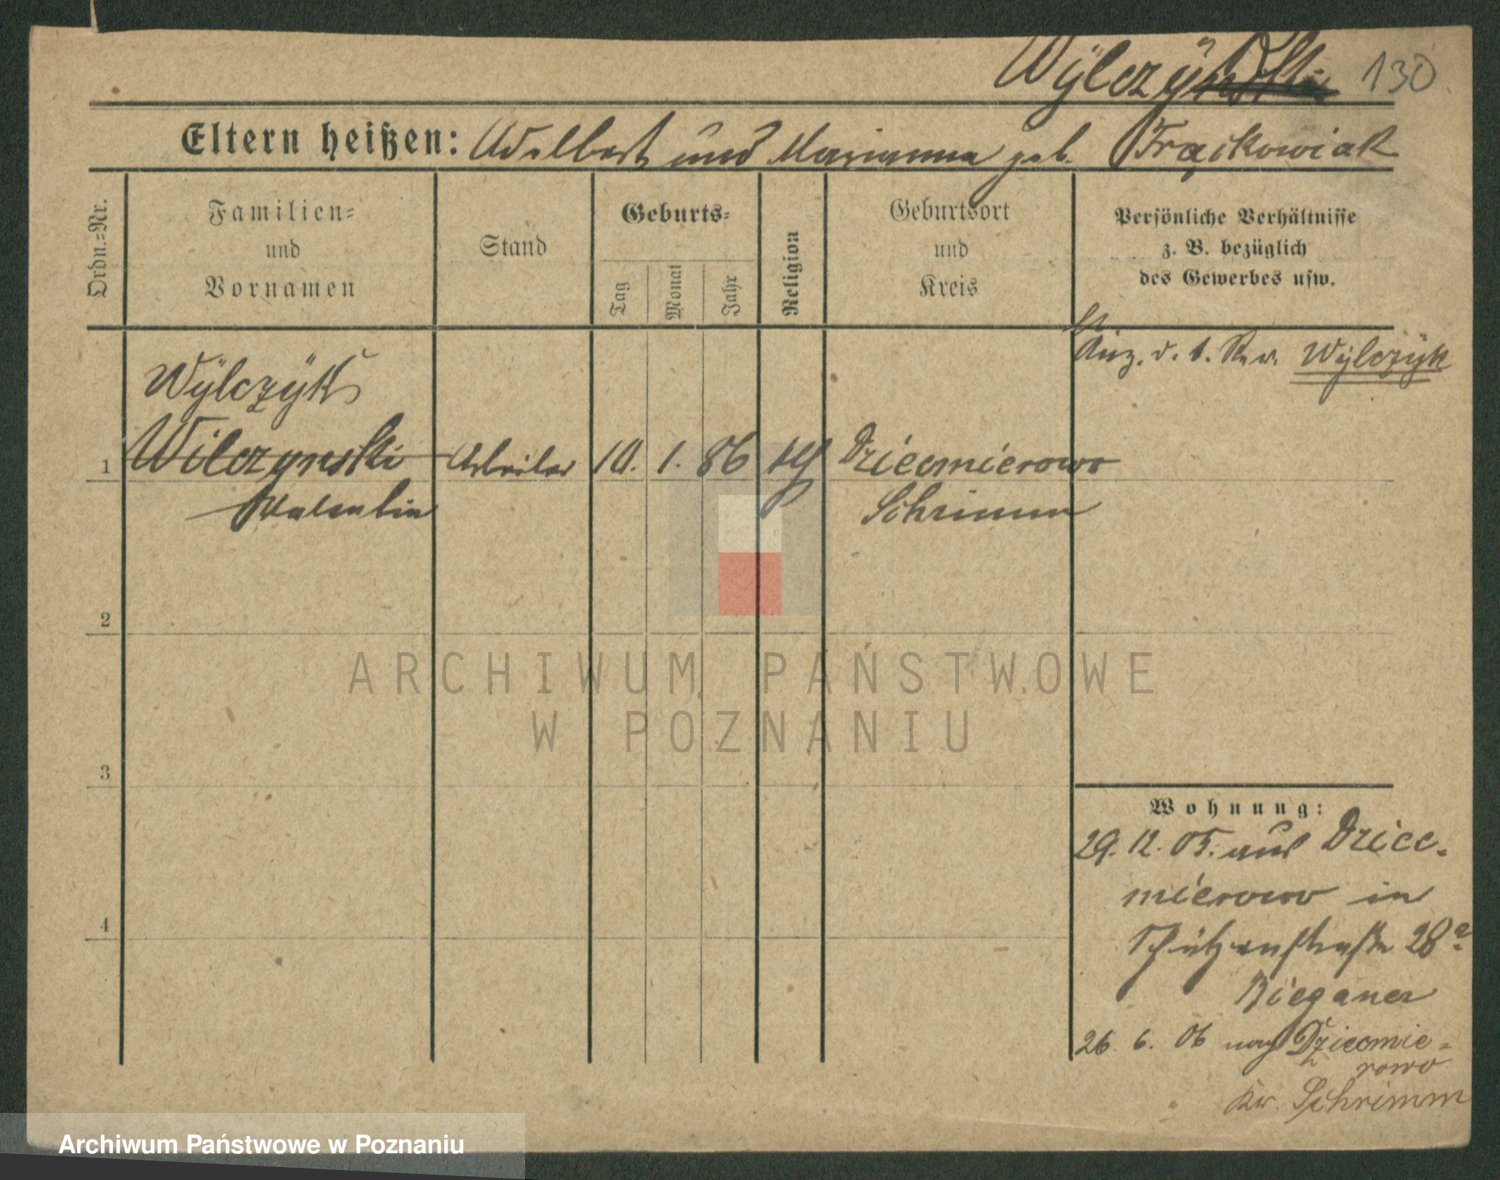 Wÿlczÿnski 130
Eltern heißen: Adelbert und Marianna geb. Frąckowiak
Ordn.=Nr.
Familien=
und
Vornamen
Stand
Geburts=
Tag
Monat
Jahr
Religion
Geburtsort
und
Kreis
Persönliche Verhältnisse
z. B. bezüglich
des Gewerbes usw.
Wÿlczÿk
Wÿlczÿk
1 Wilczynski Arbeiter 10. 1. 86 Dziecmierowo
Valentin Schrimm
2
3
4
Wohnung:
29. 12. 05. aus Dziec-
mierowo in
Schützenstraße 28a
Bieganer
26. 6. 06 nach Dziecmie-
rowo
Kr. Schrimm
ARCHIWUM PAŃSTWOWE
W POZNANIU
Archiwum Państwowe w Poznaniu